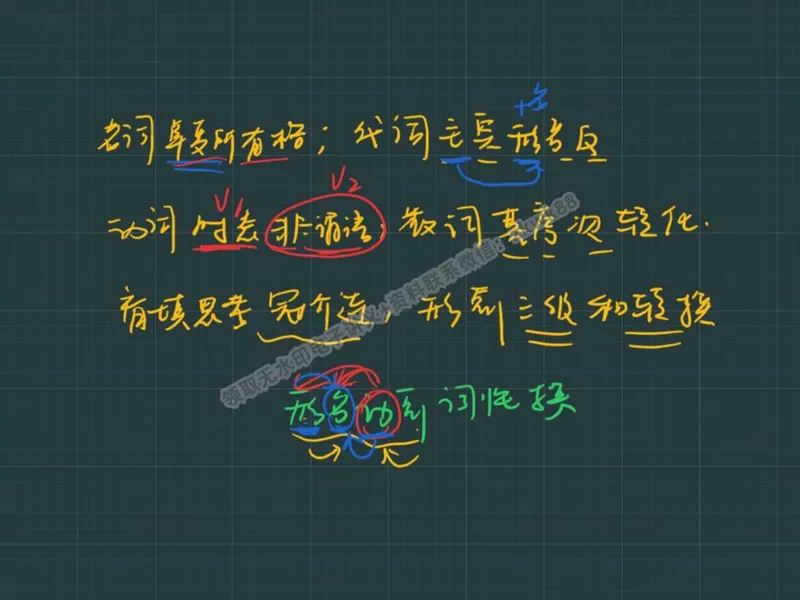 +名
名词单复所有格；代词主宾形名反
V1 V2
动词时态非谓语；数词基序次转化.
盲填思考冠介连，形副三级和转换
形名动副词性换
领取无水印电子讲义，资料联系微信：